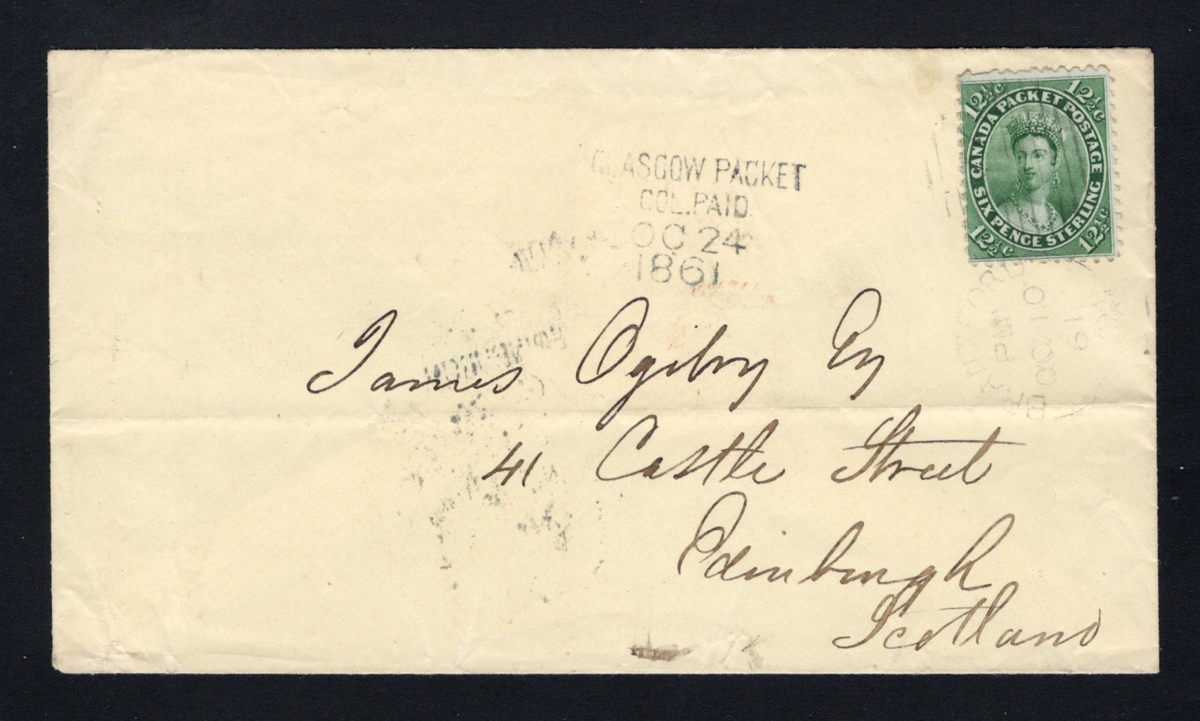 12½c 12½c
CANADA PACKET POSTAGE
SIX PENCE STERLING
12½c 12½c
GLASGOW PACKET
COL. PAID
OC 24
1861
OC 10
PM
James Ogilby Esq
41 Castle Street
Edinburgh
Scotland